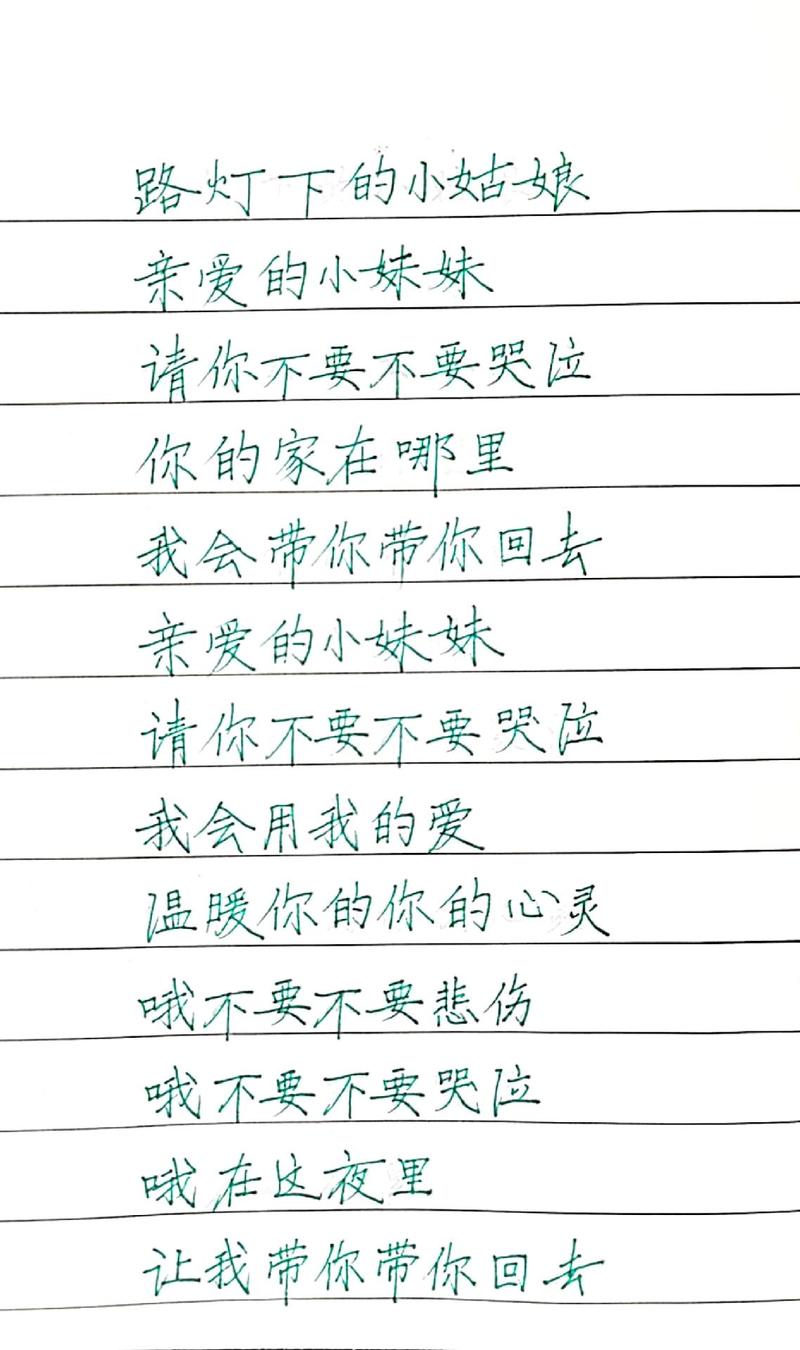 路灯下的小姑娘
亲爱的小妹妹
请你不要不要哭泣
你的家在哪里
我会带你带你回去
亲爱的小妹妹
请你不要不要哭泣
我会用我的爱
温暖你的你的心灵
哦不要不要悲伤
哦不要不要哭泣
哦在这夜里
让我带你带你回去